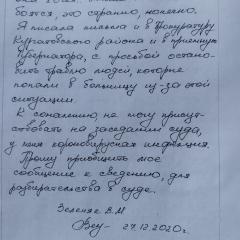 боятся, это странно, конечно.
Я писала письма и в прокуратуру
Курчатовского района и в приемную
Губернатора, с просьбой остано-
вить травлю людей, которые
попали в больницу из-за этой
ситуации.
К сожалению, не могу присут-
ствовать на заседании суда,
у меня короновирусная инфекция.
Прошу приобщить мое
сообщение к сведению, для
разбирательства в суде.
Зеленяк В.М
27.12.2020г.